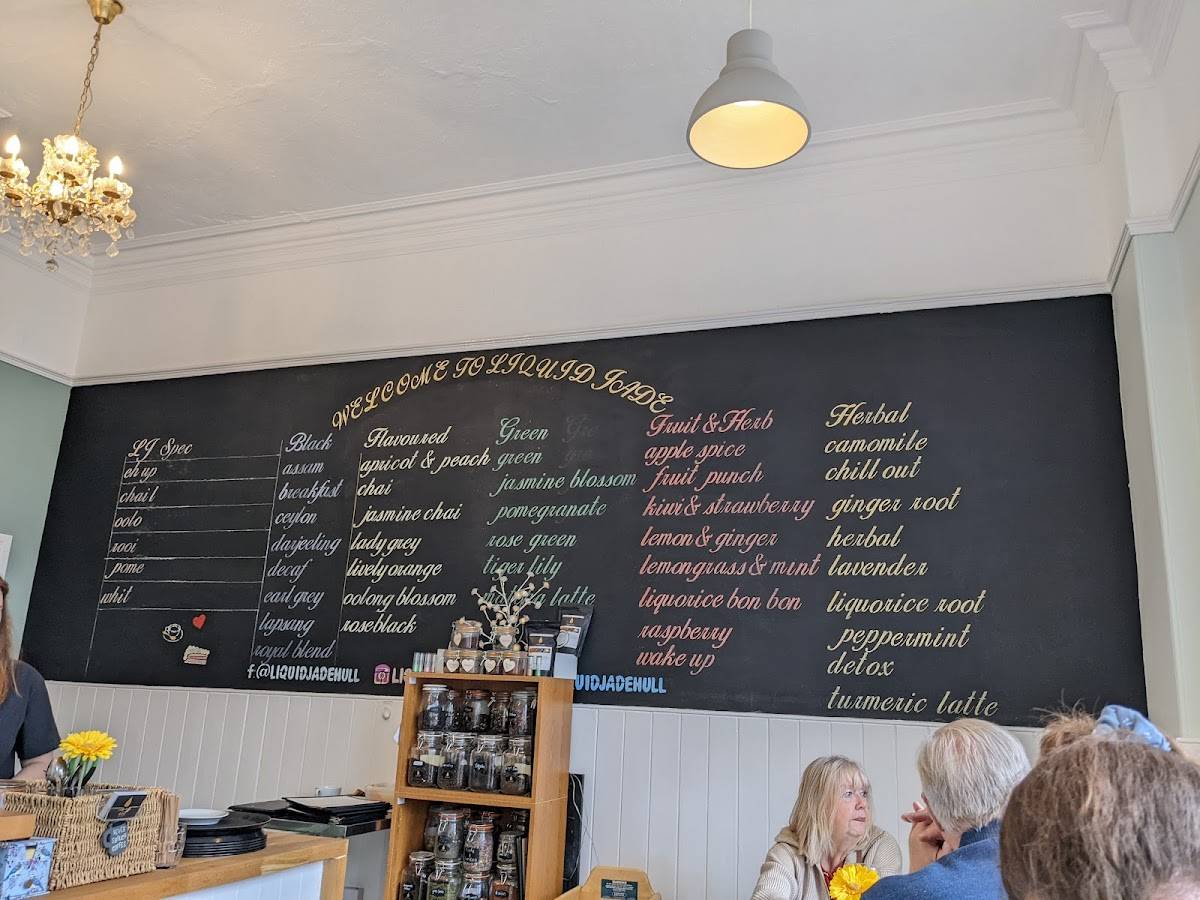 WELCOME TO LIQUID JADE
LJ Spec
chail
oolo
rooi
pome
whit
Black
assam
breakfast
ceylon
darjeeling
decaf
earl grey
lapsang
royal blend
Flavoured
apricot & peach
chai
jasmine chai
lady grey
lively orange
oolong blossom
rose black
Green
green
jasmine blossom
pomegranate
rose green
tiger lily
latte
Fruit & Herb
apple spice
fruit punch
kiwi & strawberry
lemon & ginger
lemongrass & mint
liquorice bon bon
raspberry
wake up
Herbal
camomile
chill out
ginger root
herbal
lavender
liquorice root
peppermint
detox
turmeric latte
f@LIQUIDJADEHULL
LI
UIDJADEHULL